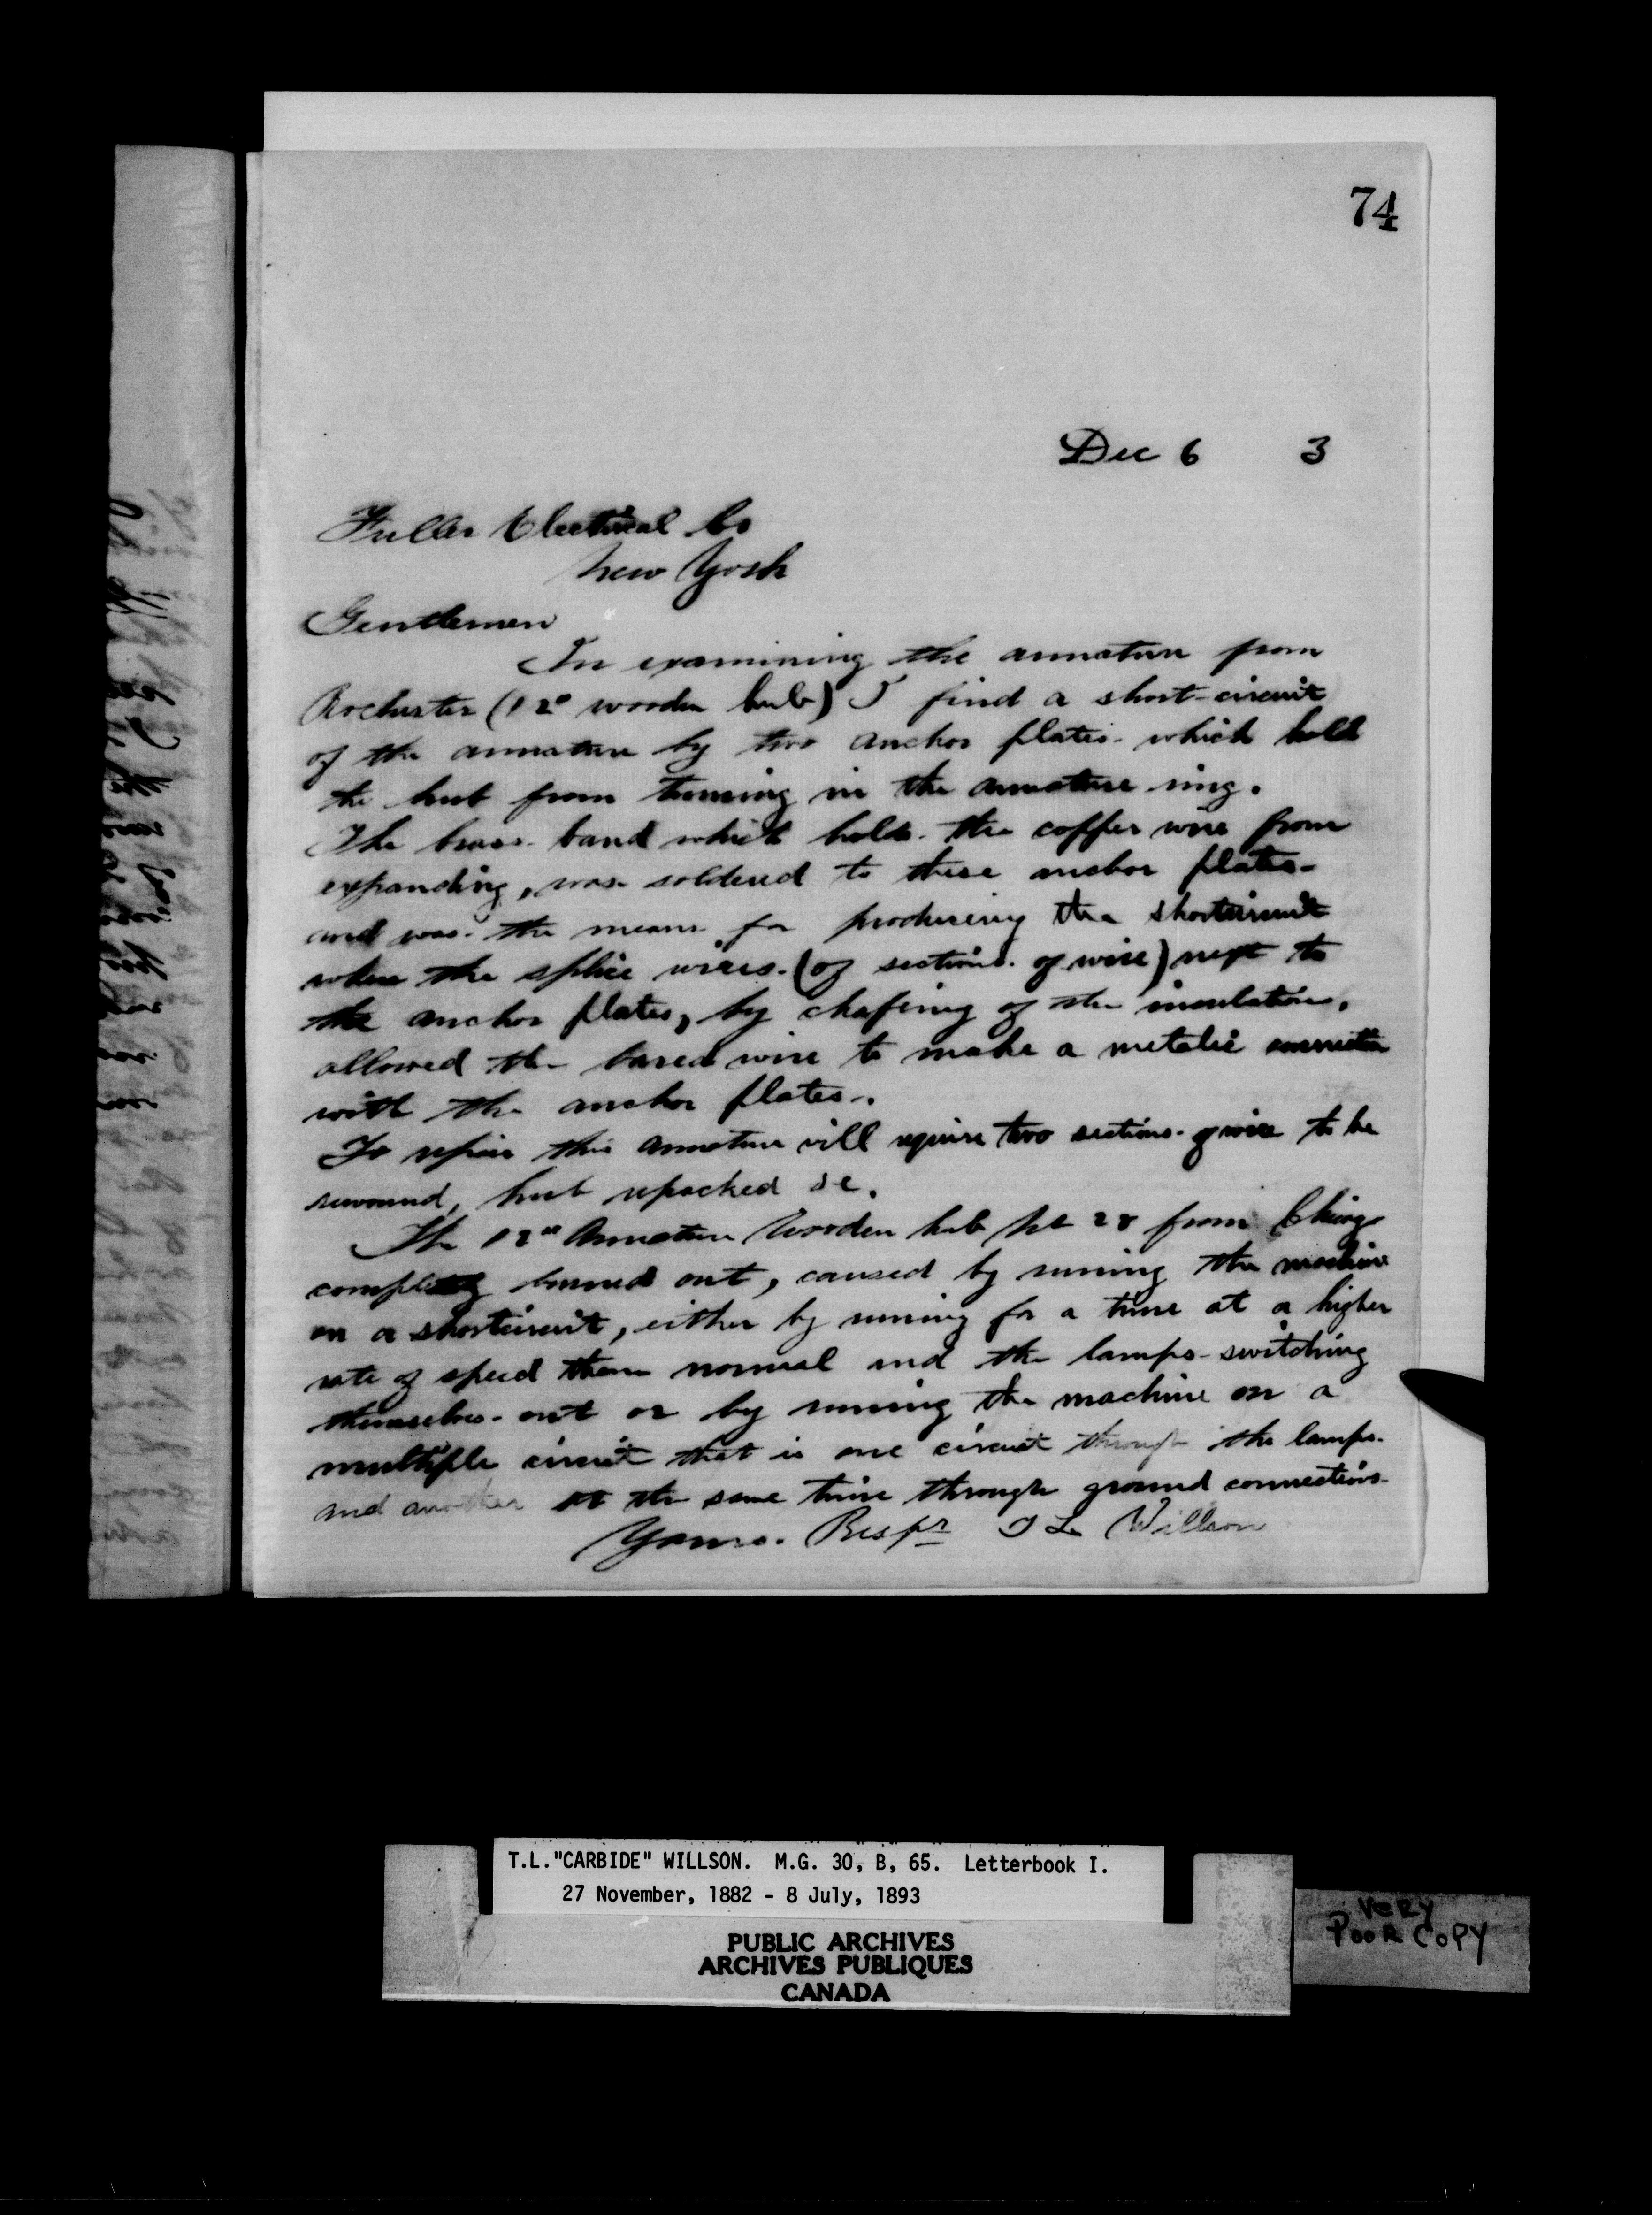 74
Dec 6 3
Fuller Electrical Co
New York
Gentlemen
In examining the armature from
Rochester (12" wooden hub) I find a short-circuit
of the armature by two anchor plates which hold
the hub from turning in the armature ring.
The brass band which holds the copper wire from
expanding, was soldered to these anchor plates
and was the means for producing the shortcircuit
when the splice wires (of sections of wire) next to
the anchor plates, by chafeing of the insulation,
allowed the bared wire to make a metalic connection
with the anchor plates.
To repair this armature will require two sections of wire to be
rewound, hub repacked &c.
The 12" Armature Wooden hub No 28 from Chicago
completely burned out, caused by runing the machine
on a shortcircuit, either by runing for a time at a higher
rate of speed than normal and the lamps switching
themselves out or by runing the machine on a
multiple circuit that is one circuit through the lamps
and another at the same time through ground connections
Yours Respy T L Willson
T.L."CARBIDE" WILLSON. M.G. 30, B, 65. Letterbook I.
27 November, 1882 - 8 July, 1893
PUBLIC ARCHIVES
ARCHIVES PUBLIQUES
CANADA
VERY
POOR COPY